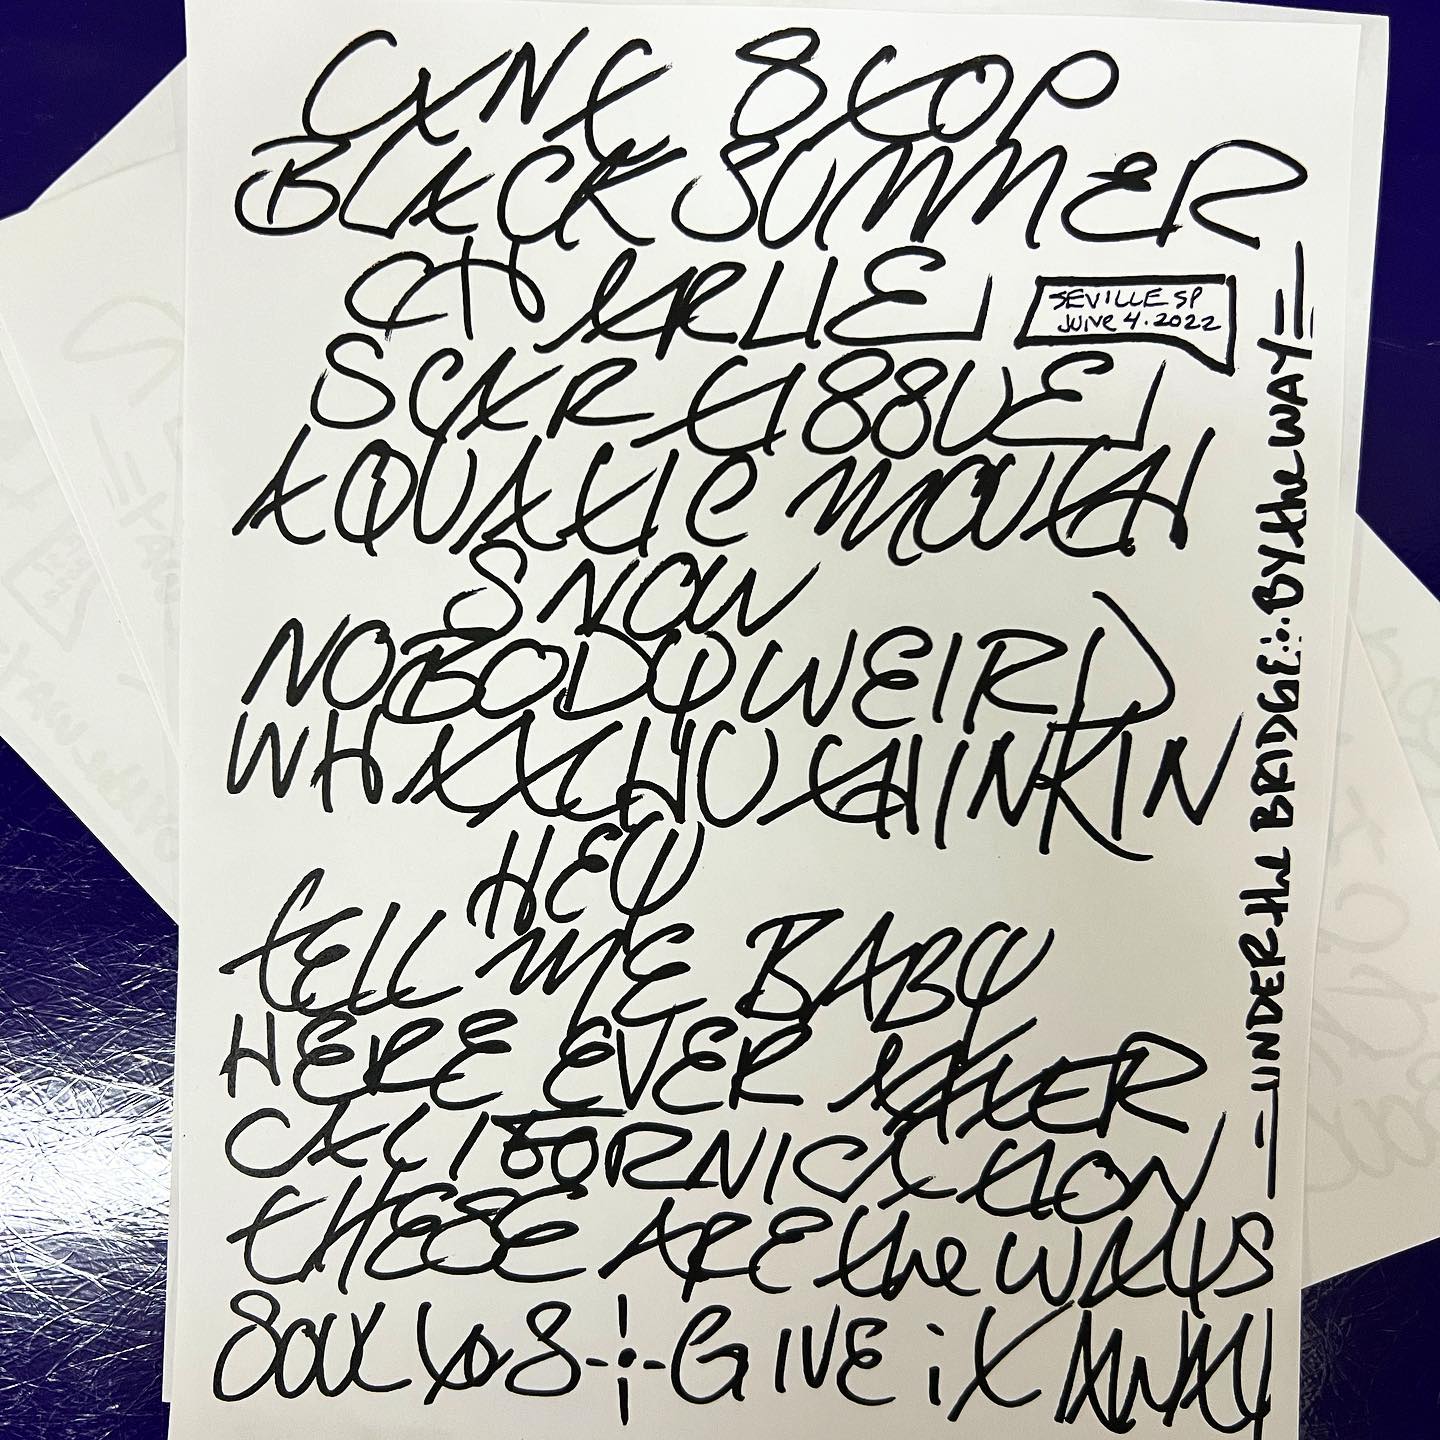 CXNX STOP
BLACK SUMMER
CHARLIE
SEVILLE SP
JUNE 4.2022
SCAR TISSUE
AQUATIC MOUTH
SNOW
NOBODY WEIRD
WHATCHU THINKIN
HEY
TELL ME BABY
HERE EVER AFTER
CALIFORNICATION
THESE ARE the WAYS
SOUL TO S GIVE iT AWAY
UNDER the BRIDGE BY the WAY